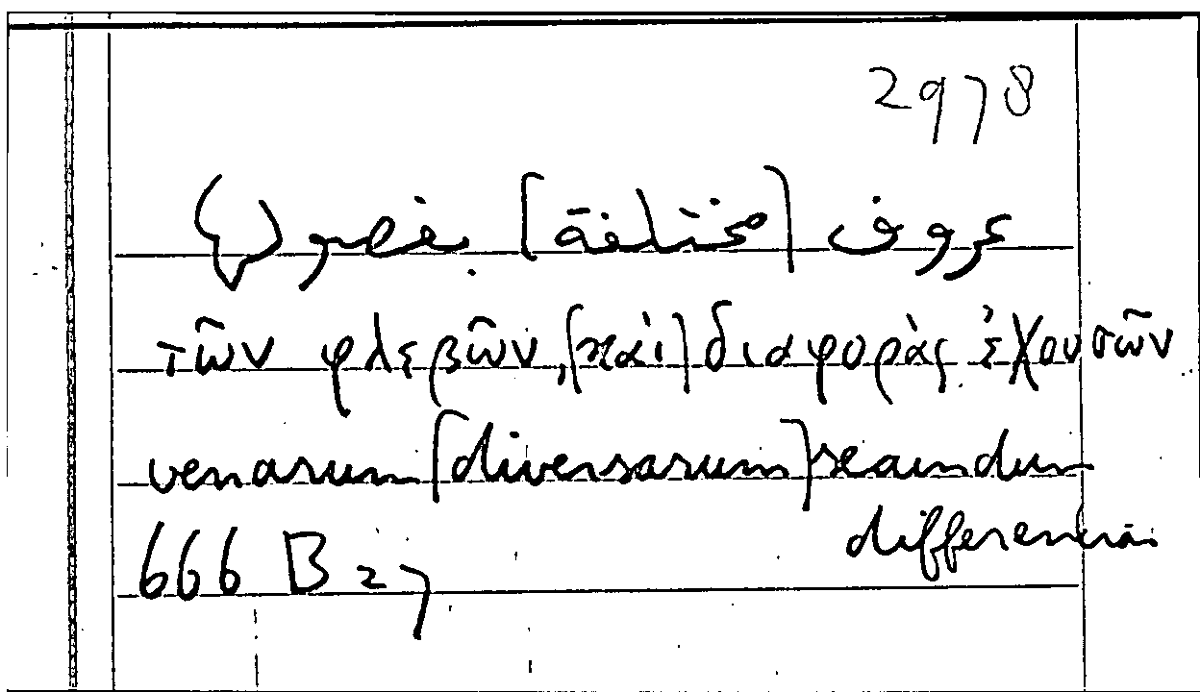 2978
عروق [مختلفة] بفصولها
τῶν φλεβῶν, [καὶ] διαφορὰς ἐχουσῶν
venarum [diversarum] secundum
differentias
666 B 27